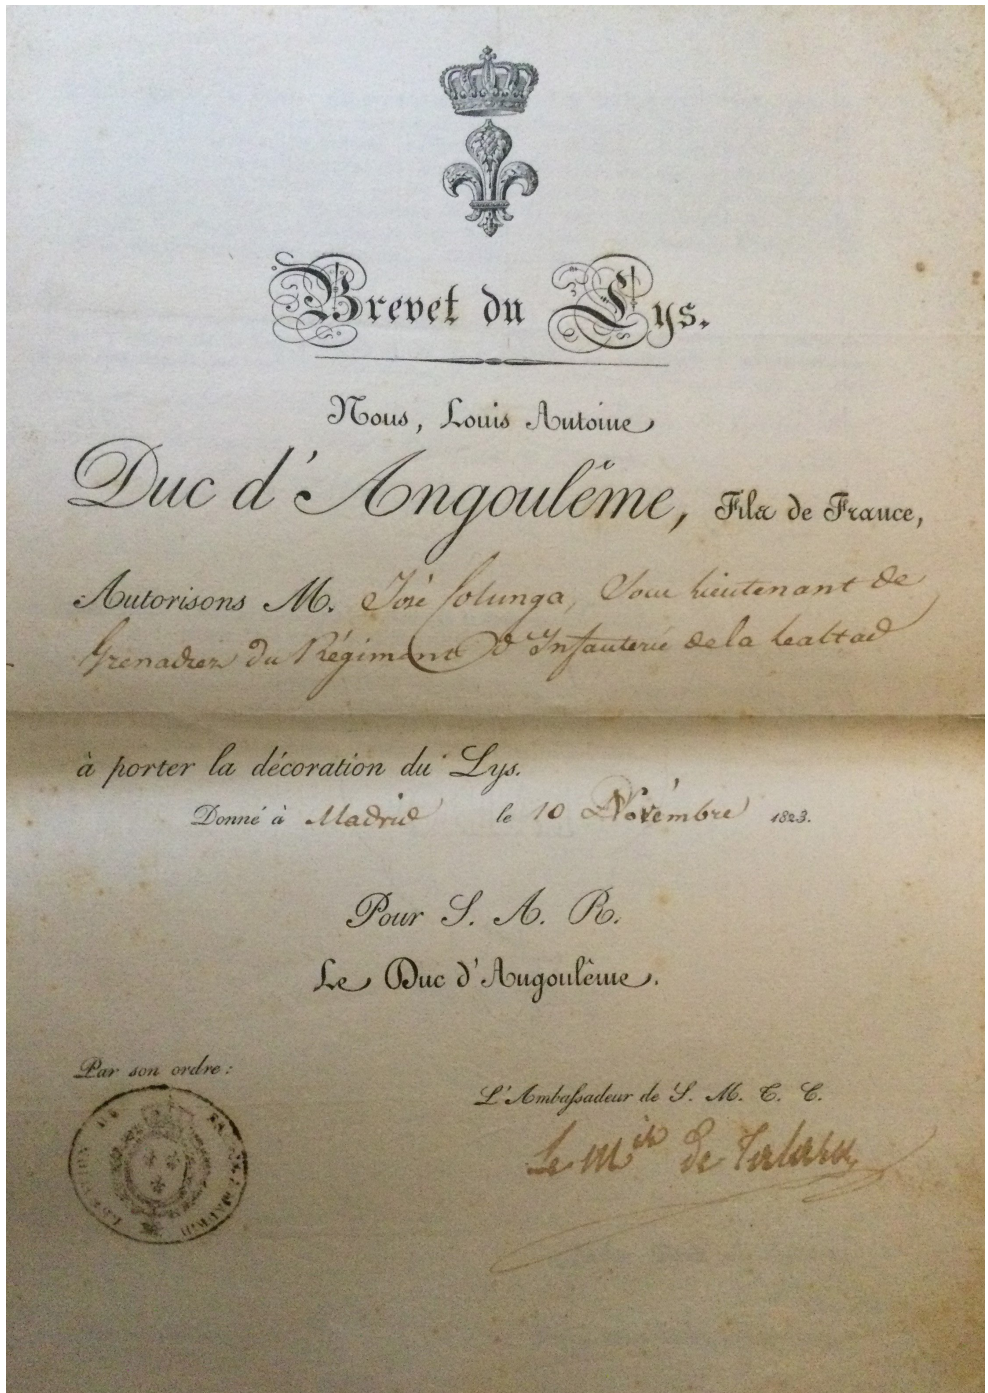 Brevet du Lys.
Nous, Louis Antoine
Duc d'Angoulême, Fils de France,
Autorisons M. José Colunga, Sous lieutenant de
Grenadiers du Régiment d'Infanterie de la Lealtad
à porter la décoration du Lys.
Donné à Madrid le 10 Novembre 1823.
Pour S. A. R.
Le Duc d'Angoulême.
Par son ordre:
L'Ambassadeur de S. M. T. C.
Le Mis de Talaru